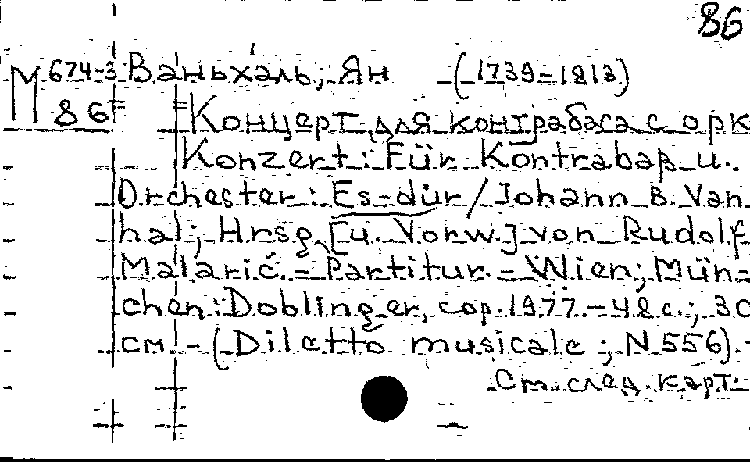 86
М 674-3 Ваньхаль, Ян (1739-1813)
86 Концерт для контрабаса с орк
Konzert: Für Kontrabaß u.
Orchester: Es-dur / Johann B. Van
hal; Hrsg. [u. Vorw.] von Rudolf
Malarić. - Partitur. - Wien; Mün-
chen: Doblinger, cop. 1977. - 42 c.; 30
см. - (Diletto musicale; N 556). -
См. след. карт.